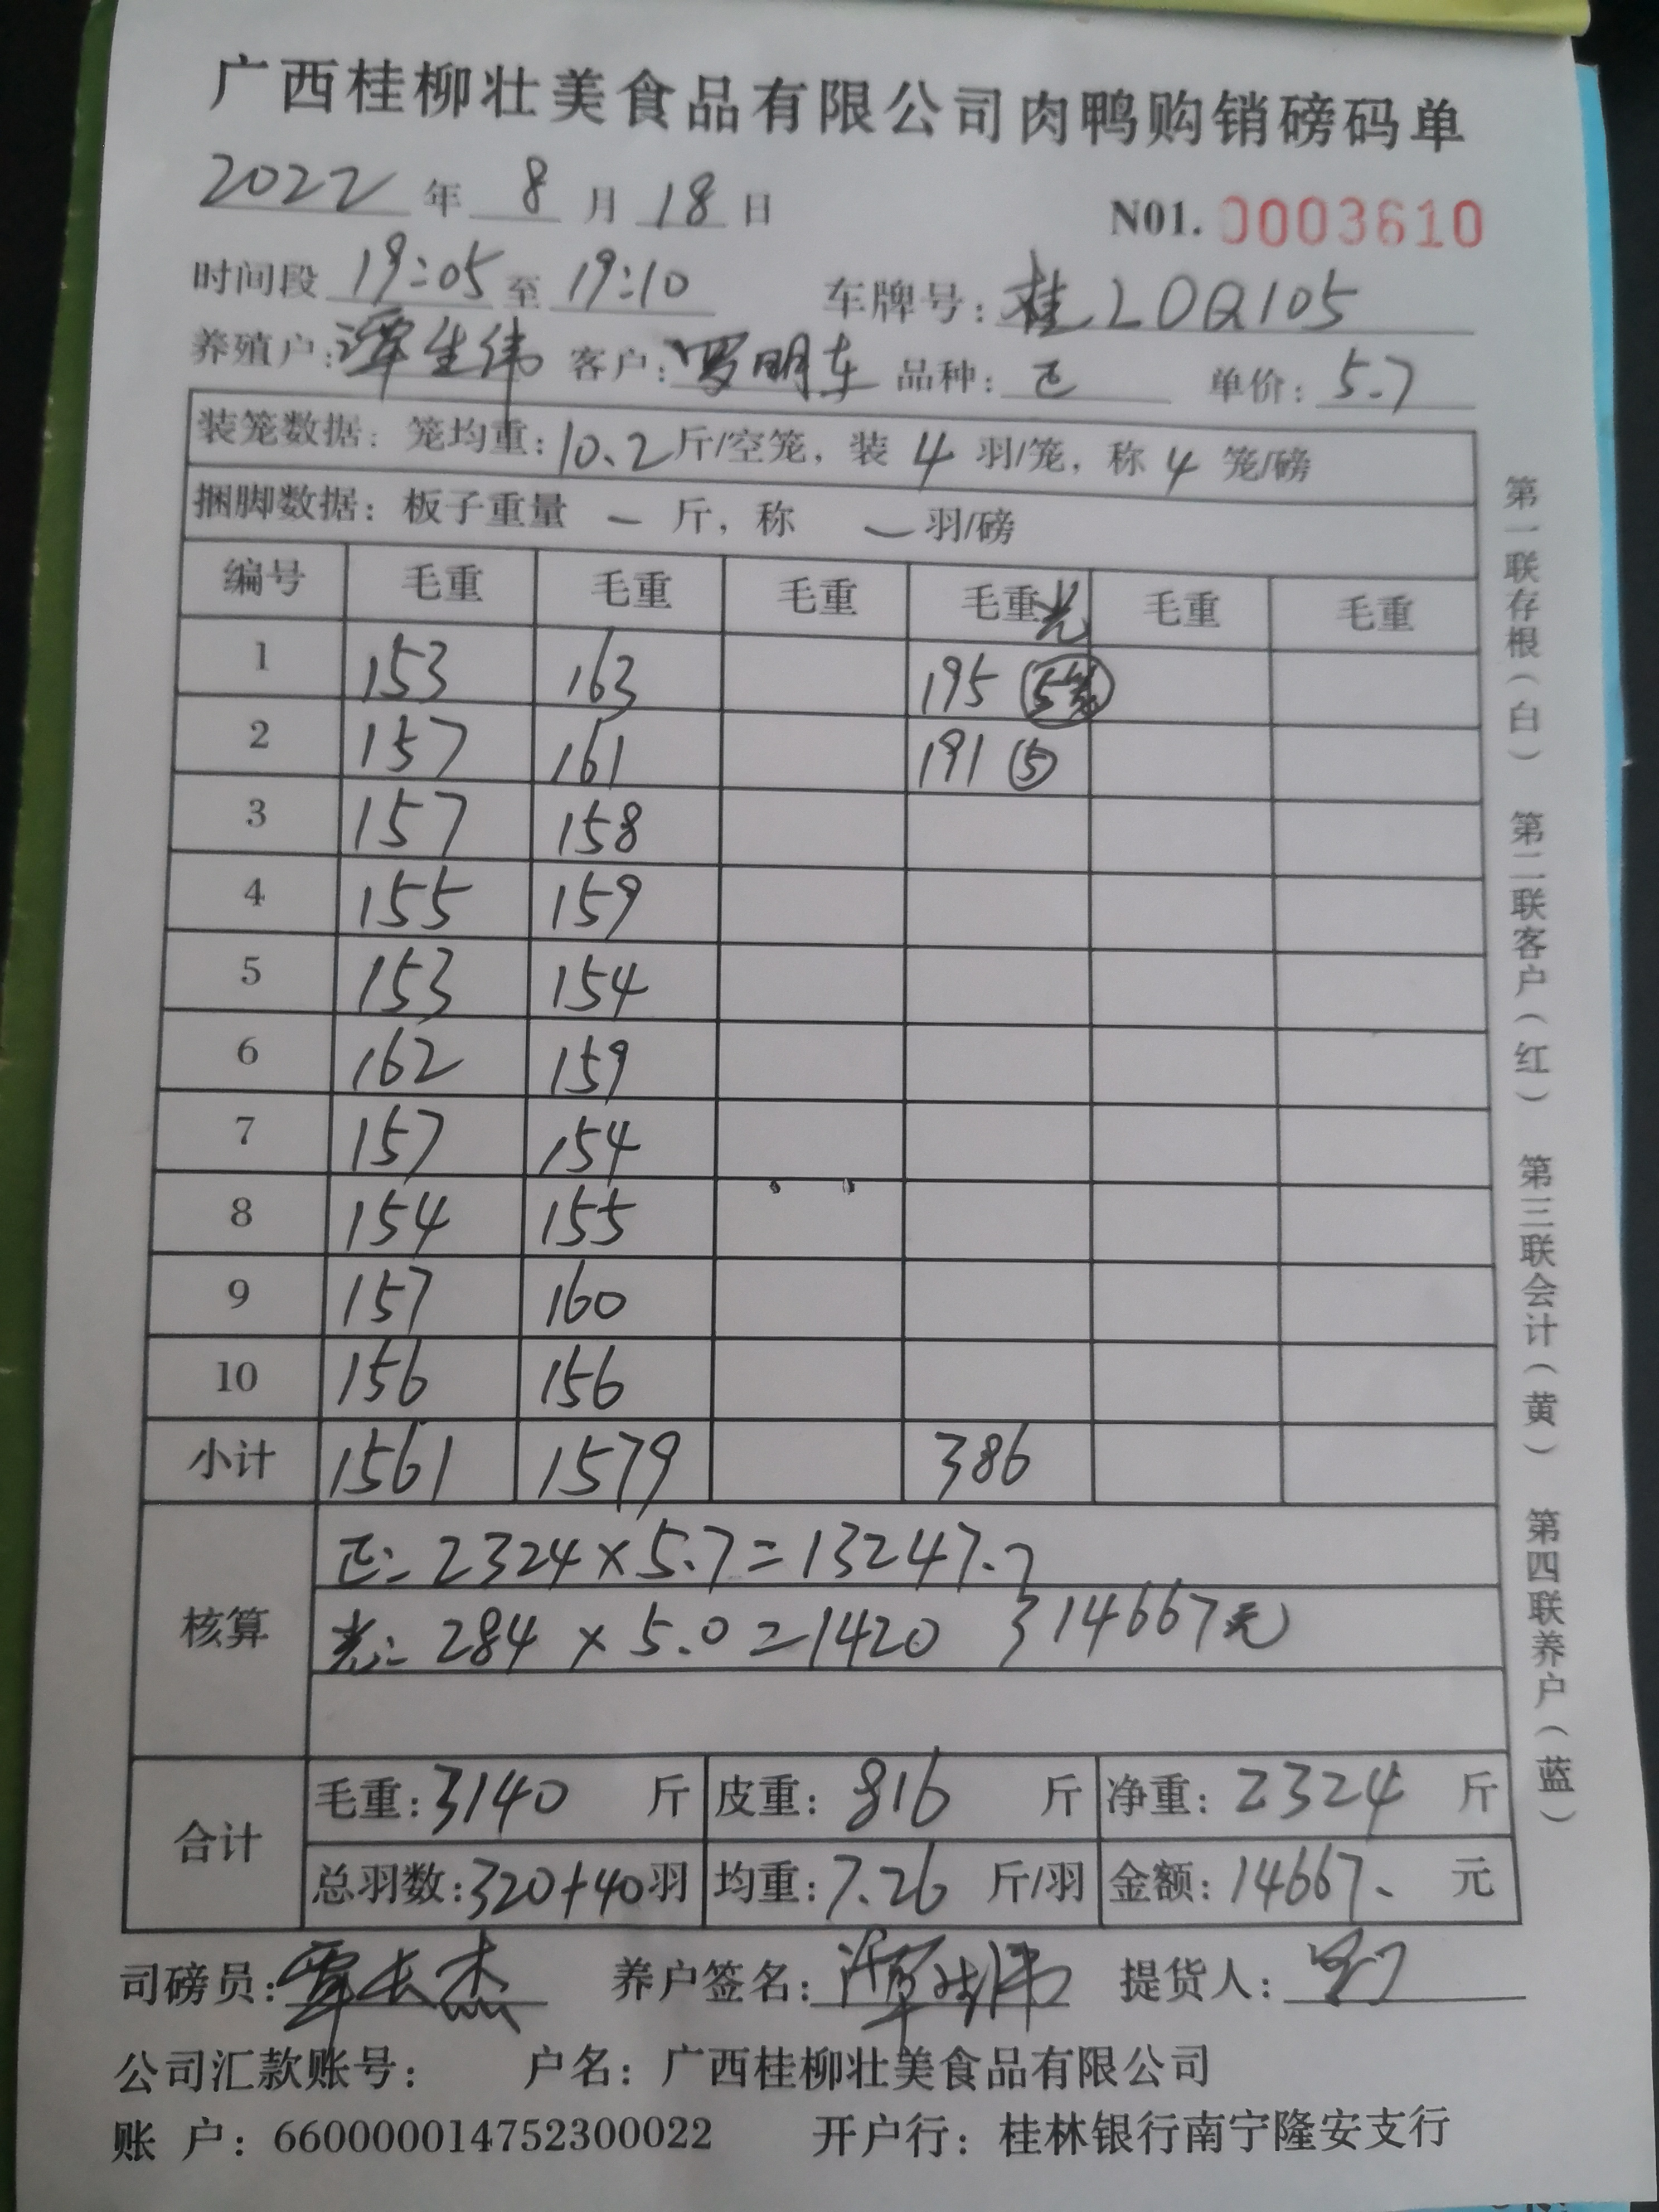 广西桂柳壮美食品有限公司肉鸭购销磅码单
2022 年 8 月 18 日 N01. 0003610
时间段 19:05 至 19:10 车牌号: 桂LDQ105
养殖户: 覃生伟 客户: 罗明东 品种: 正 单价: 5.7
装笼数据: 笼均重: 10.2 斤/空笼, 装 4 羽/笼, 称 4 笼/磅
捆脚数据: 板子重量 一 斤, 称 一 羽/磅
编号 毛重 毛重 毛重 毛重光 毛重 毛重
1 153 163 195 5笼
2 157 161 191 5
3 157 158
4 155 159
5 153 154
6 162 159
7 157 154
8 154 155
9 157 160
10 156 156
小计 1561 1579 386
核算
正: 2324×5.7=13247.7
光: 284×5.0=1420 } 14667元
合计
毛重: 3140 斤 皮重: 816 斤 净重: 2324 斤
总羽数: 320+40 羽 均重: 7.26 斤/羽 金额: 14667. 元
司磅员: 覃长杰 养户签名: 提货人:
公司汇款账号: 户名: 广西桂柳壮美食品有限公司
账 户: 660000014752300022 开户行: 桂林银行南宁隆安支行
第一联存根(白) 第二联客户(红) 第三联会计(黄) 第四联养户(蓝)